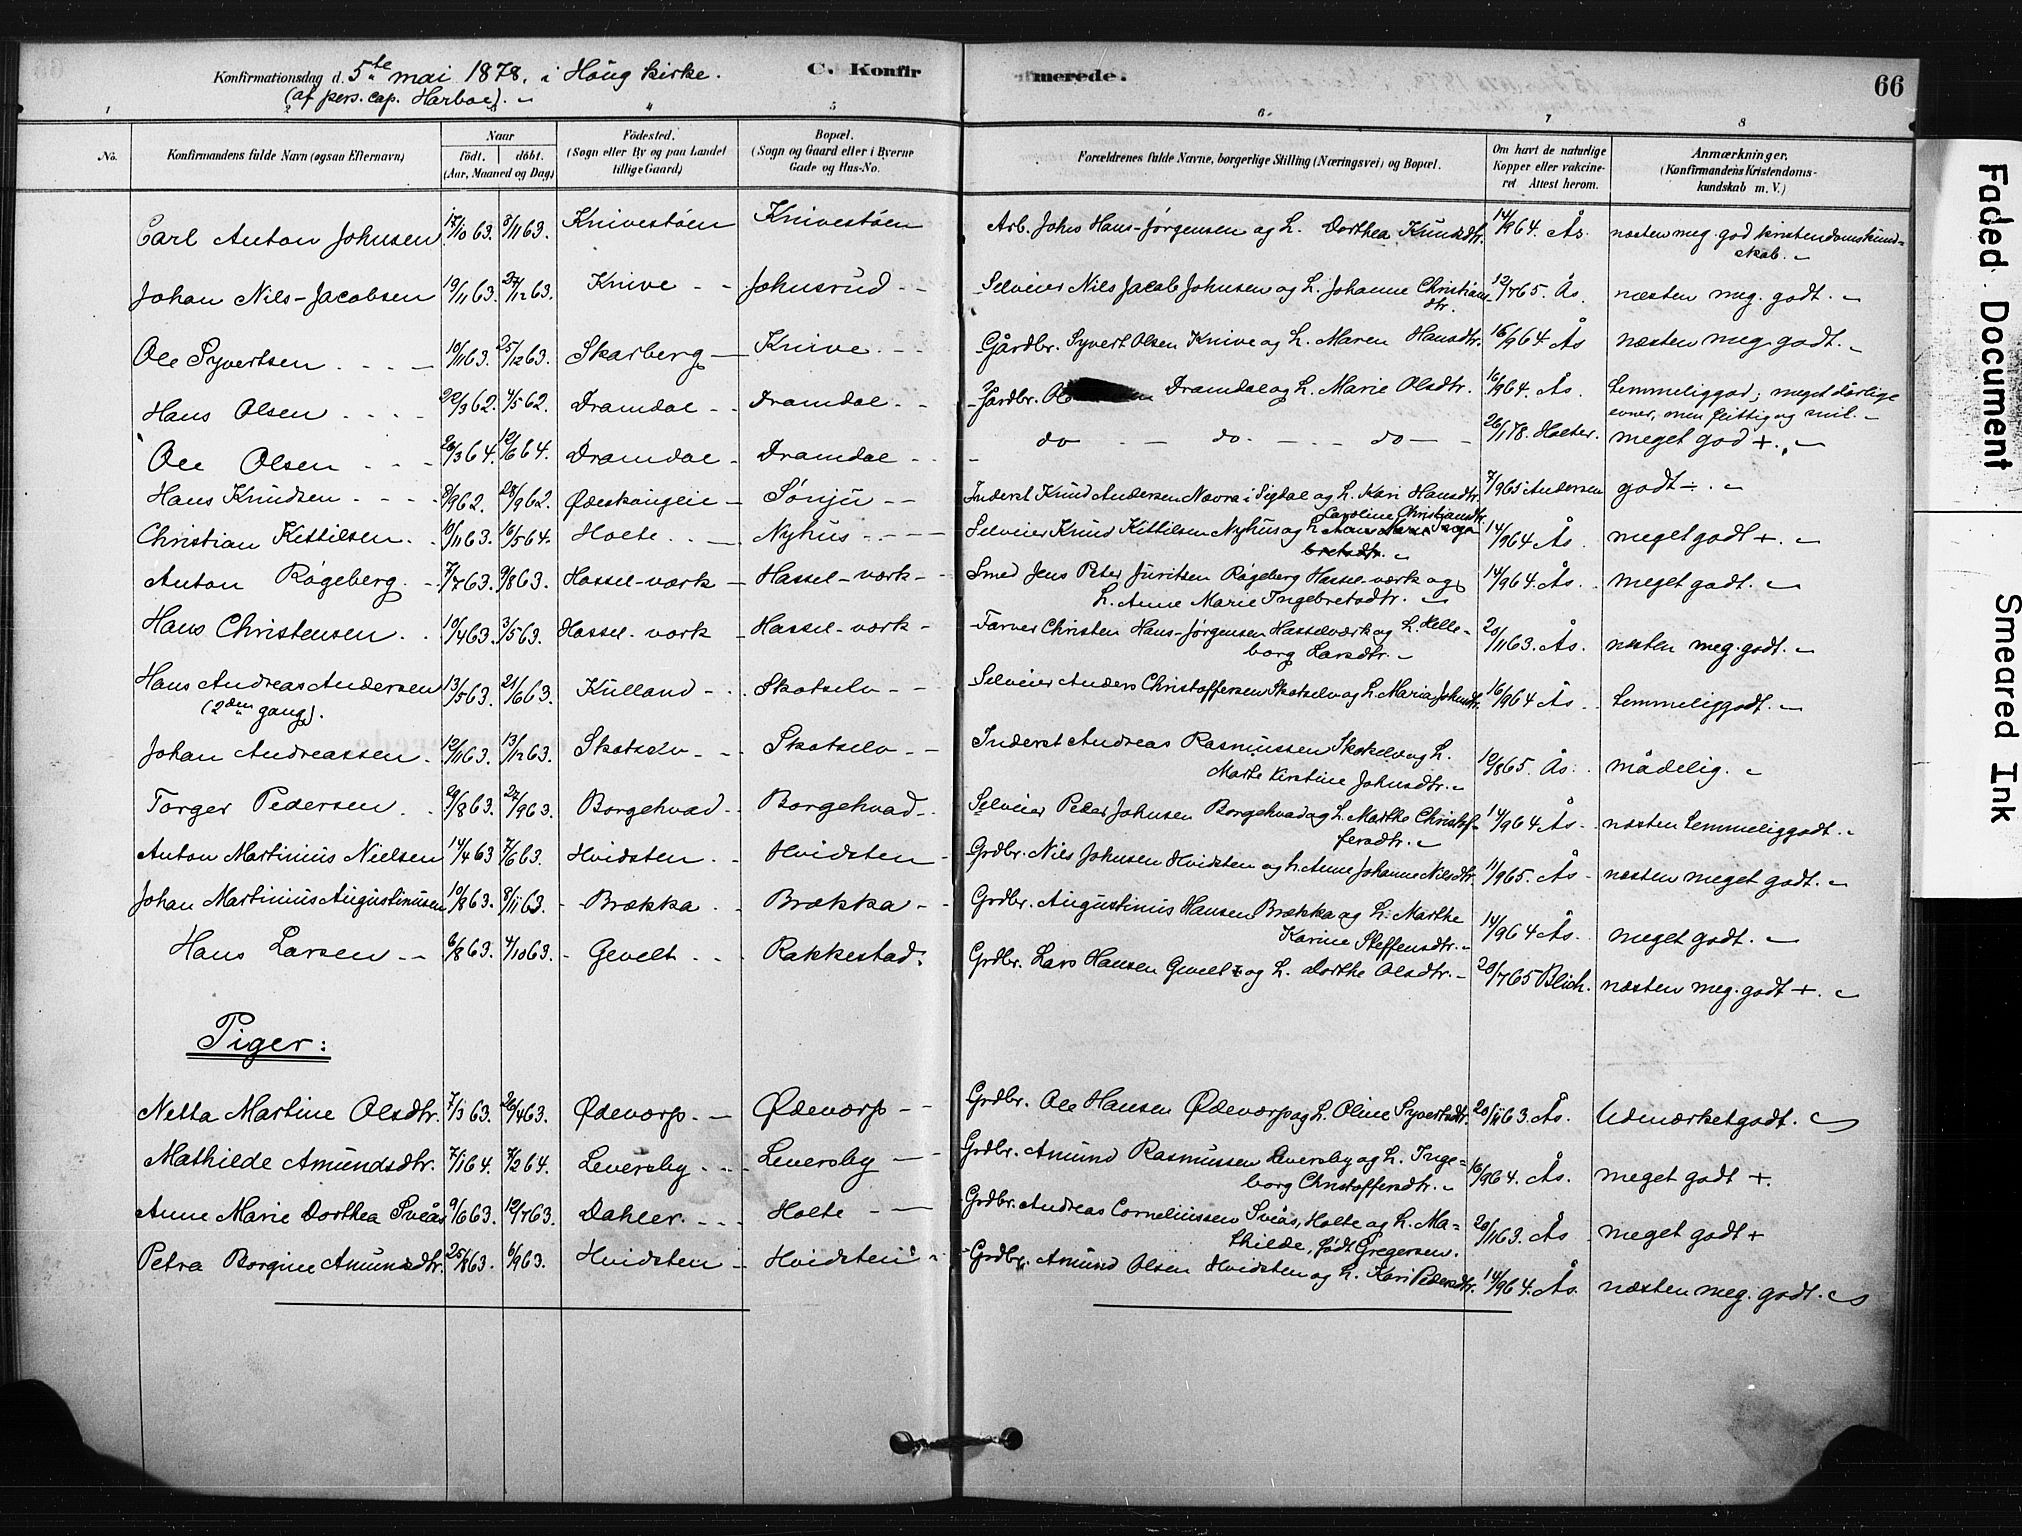 Konfirmationsdag d. 5te mai 1878. i Houg kirke. C. Konfirmerede. 66
(af pers. cap. Harboe).
1 4 5 6 7 8
No. Konfirmandens fulde Navn (ogsaa Efternavn) Naar födt. döbt. (Aar, Maaned og Dag) Födested. (Sogn eller By og paa Landet tillige Gaard) Bopæl. (Sogn og Gaard eller i Byerne Gade og Hus-No. Forældrenes fulde Navne, borgerlige Stilling (Næringsvei) og Bopæl. Om havt de naturlige Kopper eller vakcineret Attest herom. Anmærkninger. (Konfirmandens Kristendomskundskab m. V.)
Carl Anton Johnsen 17/10 63. 8/11 63. Knivestöen Knivestöen Arb. Johs Hans-Jørgensen og h. Dorthea Knudsdtr. 14/9 64. Ås. næsten meg. god kristendomskundskab.
Johan Nils-Jacobsen 19/11 63. 27/12 63. Knive Johnsrud Selveier Nils Jacob Johnsen og h. Johanne Christiansdtr. 12/7 65. Ås. næsten meg. godt.
Ole Syvertsen 10/11 63. 25/12 63. Skarberg Knive Gårdbr. Syvert Olsen Knive og h. Maren Hansdtr. 16/9 64 Ås næsten meg godt.
Hans Olsen 22/3 62. 4/5 62. Dramdal Dramdal Gårdbr. Dramdal og h. Marie Olsdtr. 16/9 64. Ås. temmeliggod; meget dårlige evner, men flittig og snil.
Ole Olsen 20/3 64. 12/6 64. Dramdal Dramdal do do. do 26/1 78. Holter. meget god +.
Hans Knudsen 8/9 62. 28/9 62. Ødeskougeie Sönju Inderst Knud Andersen Navra i Sigdal og h. Kari Hansdtr. 7/9 65 Andersen godt ÷.
Christian Kittilsen 10/11 63. 16/5 64. Holte Nyhus Selveier Knud Kittilsen Nyhus og h. Caroline Christiansdtr. 14/9 64 Ås. meget godt +.
Anton Røgeberg 7/7 63. 9/8 63. Hassel-værk Hassel-værk Smed Jens Peter Juritsen Røgeberg Hassel-værk og h. Anne Marie Ingebretsdtr. 14/9 64. Ås. meget godt.
Hans Christensen 10/4 63. 3/5 63. Hassel-værk Hassel-værk Farver Christen Hans-Jørgensen Hasselværk og h. Helleborg Larsdtr. 20/11 63. Ås. næsten meg. godt.
Hans Andreas Andersen (2den gang). 13/5 63. 21/6 63. Kulland Skotselv Selveier Anders Christoffersen Skotselv og h. Maria Johnsdtr. 16/9 64 Ås temmeliggodt.
Johan Andreassen 12/11 63. 13/12 63. Skotselv Skotselv Inderst Andreas Rasmussen Skotselv og h. Marte Kirstine Johnsdtr. 12/8 65. Ås. mådelig.
Torger Pedersen 29/8 63. 27/9 63. Borgehvad Borgehvad Selveier Peder Johnsen Borgehvad og h. Marthe Christoffersdtr. 14/9 64 Ås næsten temmeliggodt.
Anton Martinius Nielsen 14/4 63 7/6 63. Hvidsten Hvidsten Grdbr. Nils Johnsen Hvidsten og h. Anne Johanne Nilsdtr. 11/9 65. Ås næsten meget godt.
Johan Martinius Augustinusen 10/8 63. 8/11 63. Brækka Brækka Grdbr. Augustinus Hansen Brækka og h. Marthe Karine Steffensdtr. 14/9 64 Ås. meget godt.
Hans Larsen 6/8 63. 4/10 63. Gevelt Rakkestad. Grdbr. Lars Hansen Gevelt og h. Dorthe Olsdtr. 20/7 65 Blich. næsten meg. godt +.
Piger:
Netta Martine Olsdtr. 7/3 63. 26/4 63. Ødevorp Ødevorp Grdbr. Ole Hansen Ødevorp og h. Oline Syvertsdtr. 20/11 63. Ås. Udmærketgodt.
Mathilde Amundsdtr. 7/1 64. 7/2 64. Leversby Leversby Grdbr. Amund Rasmussen Leversby og h. Ingeborg Christoffersdtr. 16/9 64. Ås. meget godt +.
Anne Marie Dorthea Sveås 9/6 63. 12/7 63. Dahler Holte Grdbr. Andreas Corneliussen Sveås, Holte og h. Mathilde, født Gregersen. 20/11 63. Ås meget godt +
Petra Borgine Amundsdtr. 25/1 63. 6/9 63. Hvidsten Hvidsten Grdbr. Amund Olsen Hvidsten og h. Kari Pedersdtr. 14/9 64. Ås. næsten meg. godt.
Faded Document
Smeared Ink